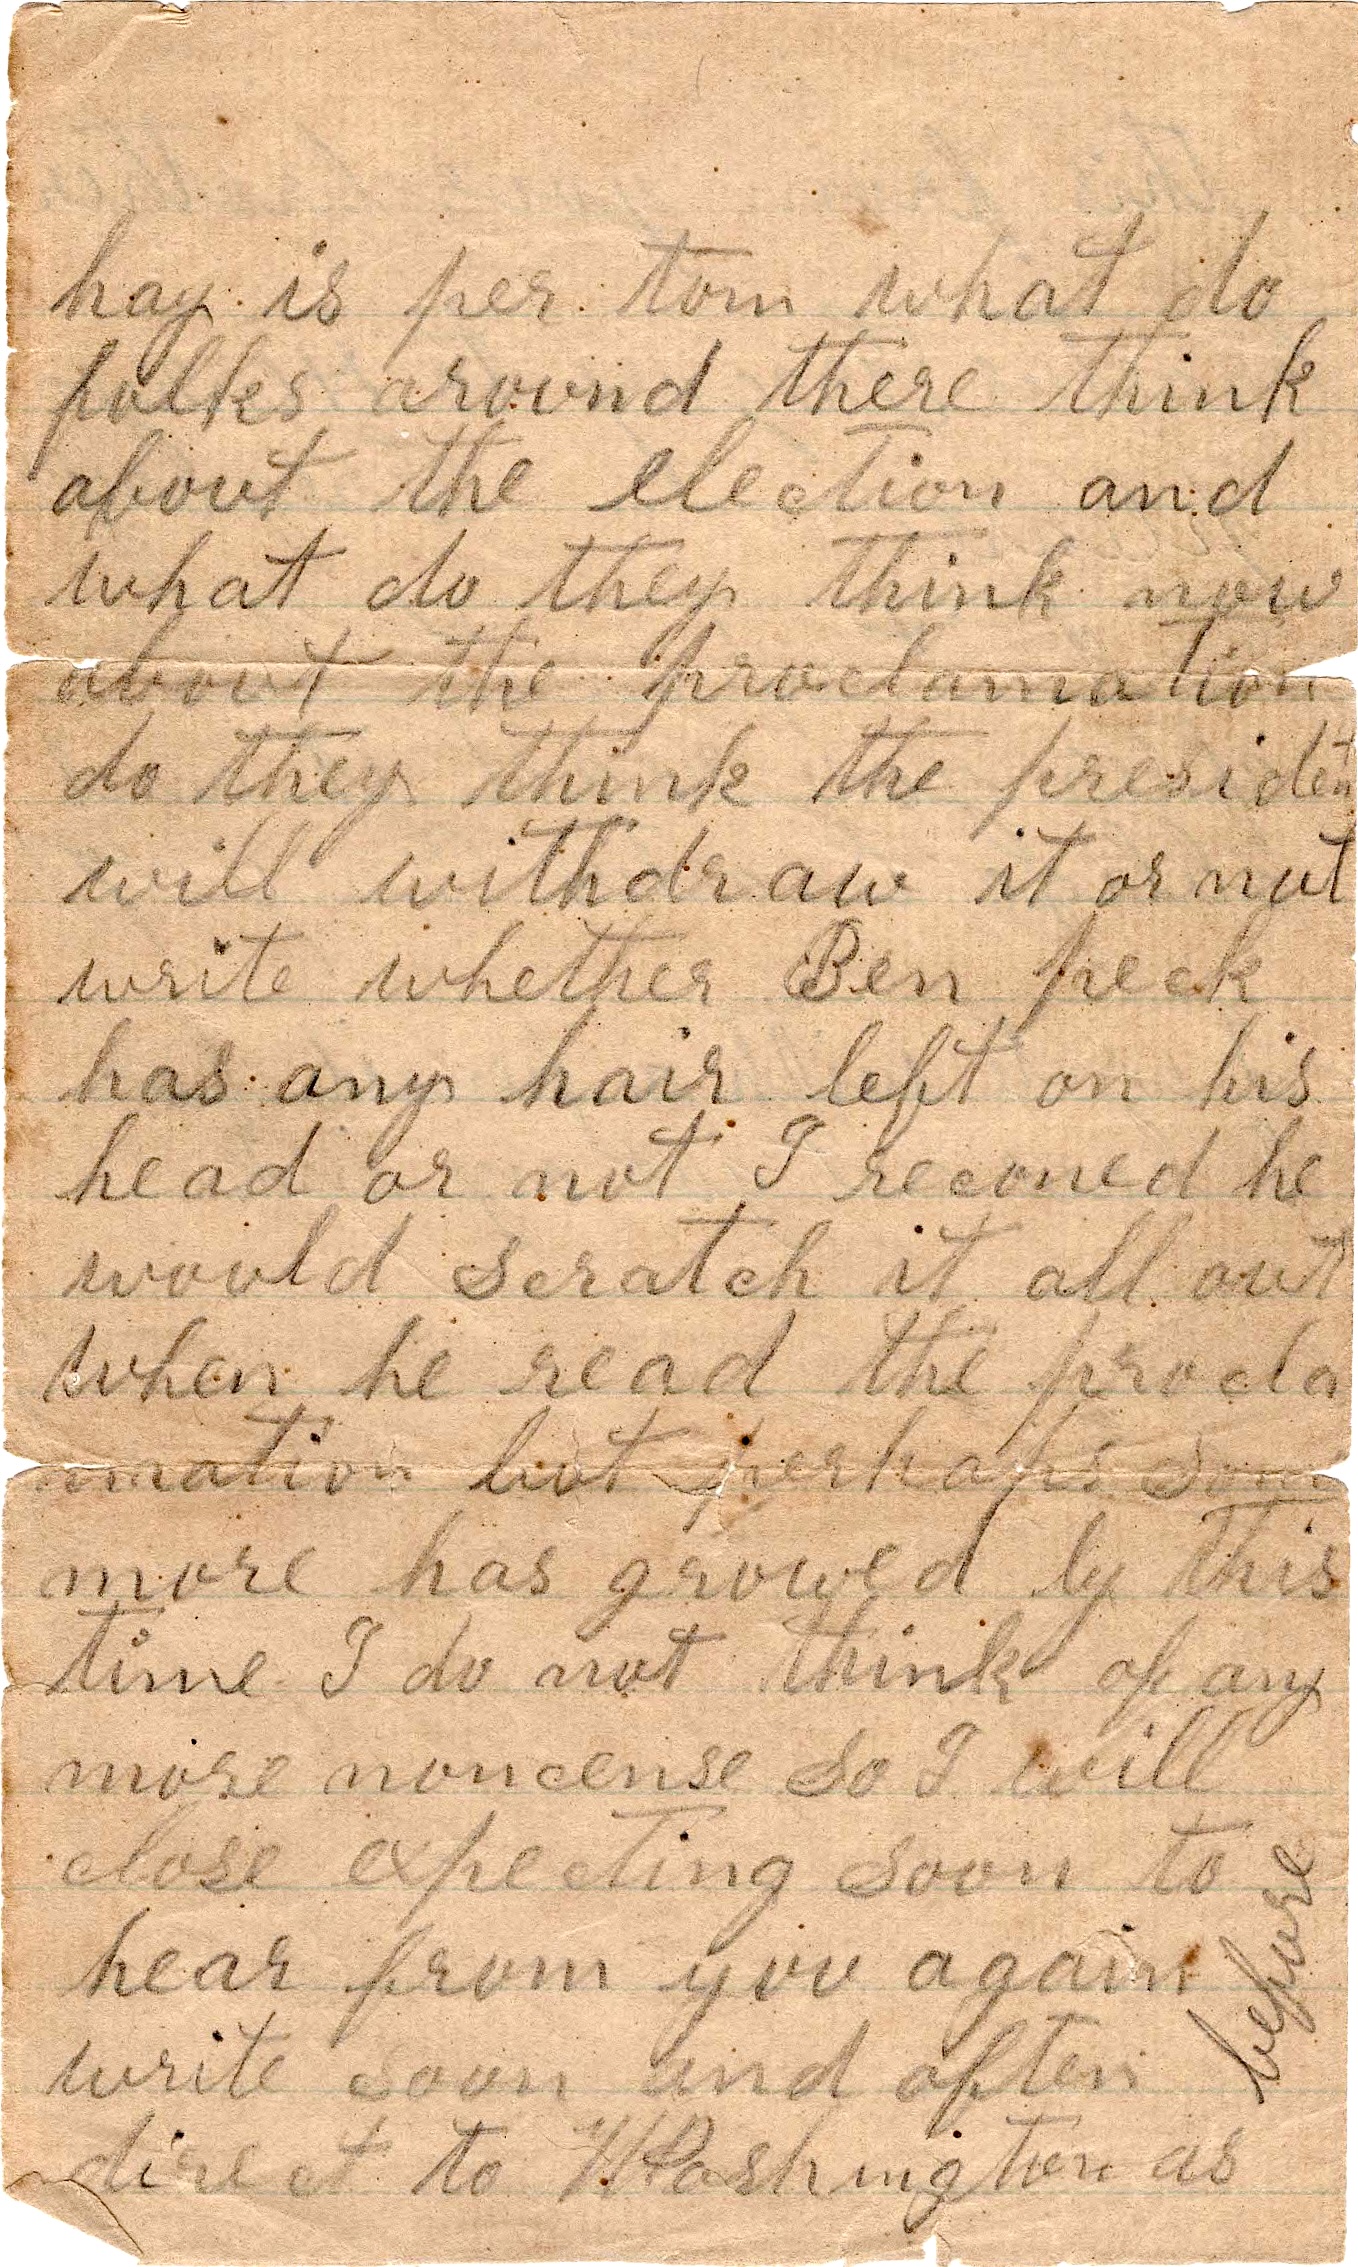 hay is per ton what do
folks around there think
about the election and
what do they think now
about the proclamation
do they think the president
will withdraw it or not
write whether Ben peck
has any hair left on his
head or not I reconed he
would scratch it all out
when he read the procla
mation but perhaps some
more has growed by this
time I do not think of any
more noncense so I will
close expecting soon to
hear from you again
write soon and often
direct to Washington as
before